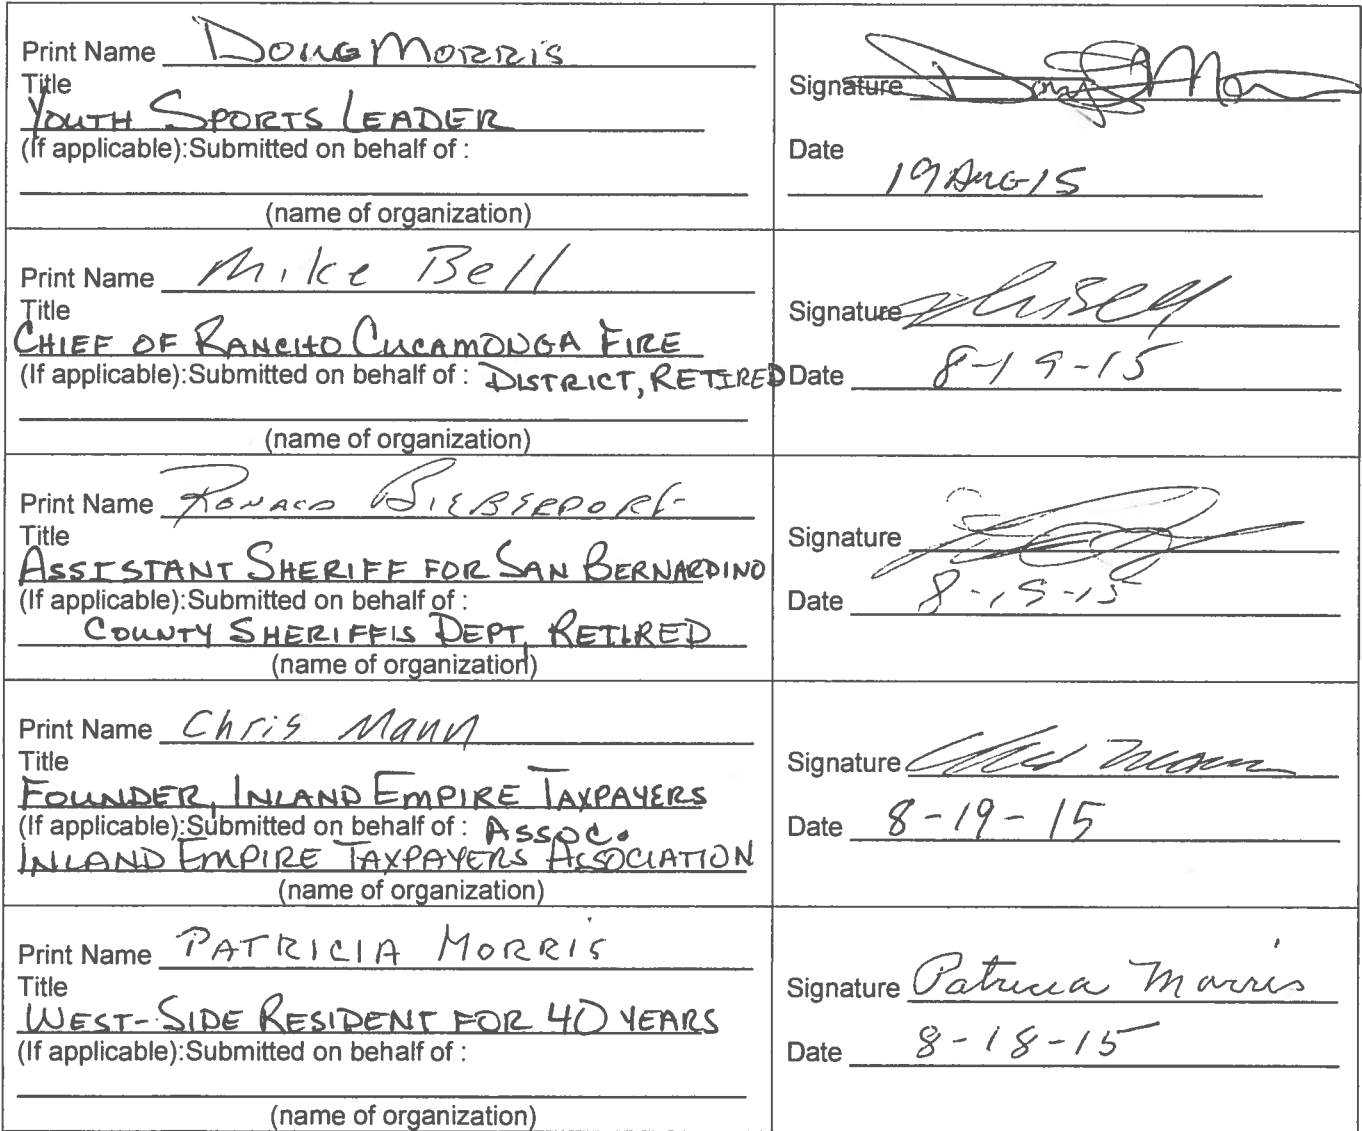 Print Name Doug Morris
Title
Youth Sports Leader
(If applicable):Submitted on behalf of :
(name of organization)
Signature Doug Morris
Date
19 Aug 15
Print Name Mike Bell
Title
Chief of Rancho Cucamonga Fire
(If applicable):Submitted on behalf of : District, Retired
(name of organization)
Signature
Date 8-19-15
Print Name Ronald
Title
Assistant Sheriff for San Bernardino
(If applicable):Submitted on behalf of :
County Sheriff's Dept, Retired
(name of organization)
Signature
Date 8-19-15
Print Name Chris Mann
Title
Founder, Inland Empire Taxpayers
(If applicable):Submitted on behalf of : Assoc.
Inland Empire Taxpayers Association
(name of organization)
Signature Chris Mann
Date 8-19-15
Print Name Patricia Morris
Title
West-Side Resident for 40 years
(If applicable):Submitted on behalf of :
(name of organization)
Signature Patricia Morris
Date 8-18-15